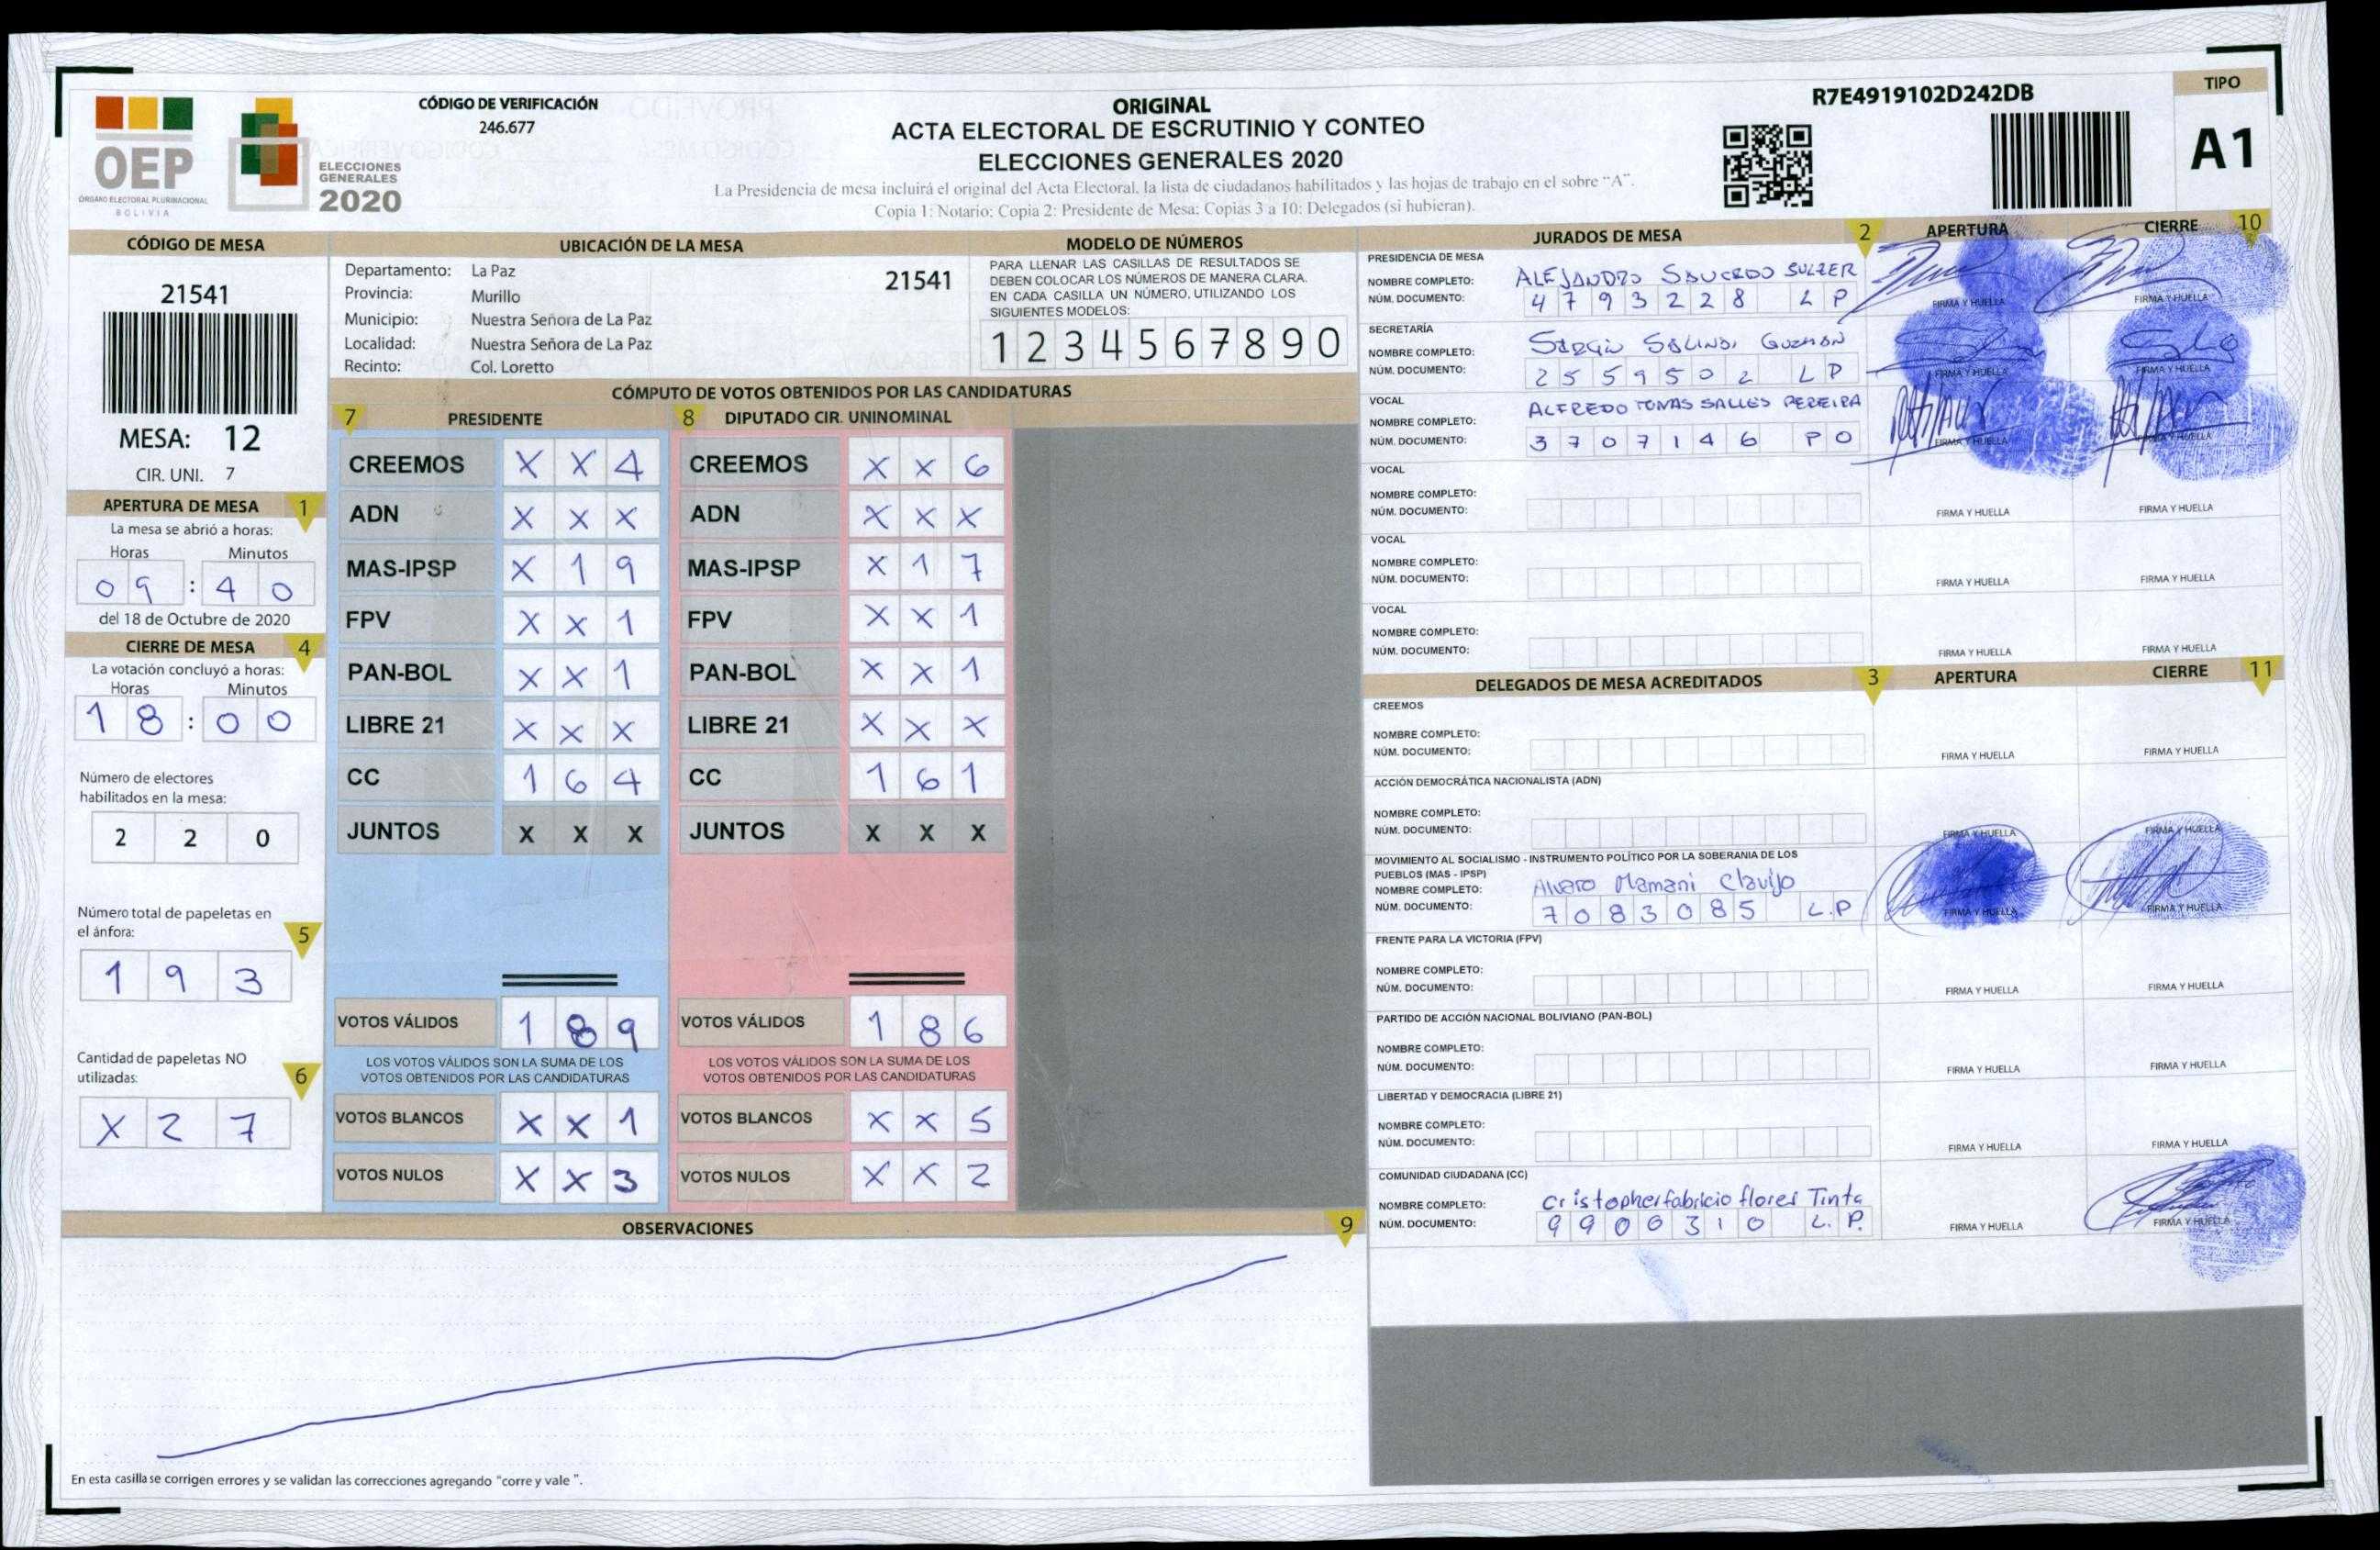 OEP
ÓRGANO ELECTORAL PLURINACIONAL
BOLIVIA
ELECCIONES
GENERALES
2020
CÓDIGO DE VERIFICACIÓN
246.677
ORIGINAL
ACTA ELECTORAL DE ESCRUTINIO Y CONTEO
ELECCIONES GENERALES 2020
La Presidencia de mesa incluirá el original del Acta Electoral, la lista de ciudadanos habilitados y las hojas de trabajo en el sobre “A”.
Copia 1: Notario; Copia 2: Presidente de Mesa; Copias 3 a 10: Delegados (si hubieran).
R7E4919102D242DB
TIPO
A1
CÓDIGO DE MESA
21541
MESA: 12
CIR. UNI. 7
APERTURA DE MESA 1
La mesa se abrió a horas:
Horas Minutos
09 : 40
del 18 de Octubre de 2020
CIERRE DE MESA 4
La votación concluyó a horas:
Horas Minutos
18 : 00
Número de electores
habilitados en la mesa:
2 2 0
Número total de papeletas en
el ánfora: 5
1 9 3
Cantidad de papeletas NO
utilizadas: 6
X 2 7
UBICACIÓN DE LA MESA
Departamento: La Paz 21541
Provincia: Murillo
Municipio: Nuestra Señora de La Paz
Localidad: Nuestra Señora de La Paz
Recinto: Col. Loretto
MODELO DE NÚMEROS
PARA LLENAR LAS CASILLAS DE RESULTADOS SE
DEBEN COLOCAR LOS NÚMEROS DE MANERA CLARA.
EN CADA CASILLA UN NÚMERO, UTILIZANDO LOS
SIGUIENTES MODELOS:
1 2 3 4 5 6 7 8 9 0
CÓMPUTO DE VOTOS OBTENIDOS POR LAS CANDIDATURAS
7 PRESIDENTE 8 DIPUTADO CIR. UNINOMINAL
CREEMOS X X 4 CREEMOS X X 6
ADN X X X ADN X X X
MAS-IPSP X 1 9 MAS-IPSP X 1 7
FPV X X 1 FPV X X 1
PAN-BOL X X 1 PAN-BOL X X 1
LIBRE 21 X X X LIBRE 21 X X X
CC 1 6 4 CC 1 6 1
JUNTOS X X X JUNTOS X X X
VOTOS VÁLIDOS 1 8 9 VOTOS VÁLIDOS 1 8 6
LOS VOTOS VÁLIDOS SON LA SUMA DE LOS LOS VOTOS VÁLIDOS SON LA SUMA DE LOS
VOTOS OBTENIDOS POR LAS CANDIDATURAS VOTOS OBTENIDOS POR LAS CANDIDATURAS
VOTOS BLANCOS X X 1 VOTOS BLANCOS X X 5
VOTOS NULOS X X 3 VOTOS NULOS X X 2
OBSERVACIONES 9
En esta casilla se corrigen errores y se validan las correcciones agregando "corre y vale ".
JURADOS DE MESA 2 APERTURA CIERRE 10
PRESIDENCIA DE MESA
NOMBRE COMPLETO: ALEJANDRO SAUCEDO SULZER
NÚM. DOCUMENTO: 4793228 LP FIRMA Y HUELLA FIRMA Y HUELLA
SECRETARÍA
NOMBRE COMPLETO: SERGIO SALINAS GUZMAN
NÚM. DOCUMENTO: 2559502 LP FIRMA Y HUELLA FIRMA Y HUELLA
VOCAL
NOMBRE COMPLETO: ALFREDO TOMAS SALLES PEREIRA
NÚM. DOCUMENTO: 3707146 PO FIRMA Y HUELLA FIRMA Y HUELLA
VOCAL
NOMBRE COMPLETO:
NÚM. DOCUMENTO: FIRMA Y HUELLA FIRMA Y HUELLA
VOCAL
NOMBRE COMPLETO:
NÚM. DOCUMENTO: FIRMA Y HUELLA FIRMA Y HUELLA
VOCAL
NOMBRE COMPLETO:
NÚM. DOCUMENTO: FIRMA Y HUELLA FIRMA Y HUELLA
DELEGADOS DE MESA ACREDITADOS 3 APERTURA CIERRE 11
CREEMOS
NOMBRE COMPLETO:
NÚM. DOCUMENTO: FIRMA Y HUELLA FIRMA Y HUELLA
ACCIÓN DEMOCRÁTICA NACIONALISTA (ADN)
NOMBRE COMPLETO:
NÚM. DOCUMENTO: FIRMA Y HUELLA FIRMA Y HUELLA
MOVIMIENTO AL SOCIALISMO - INSTRUMENTO POLÍTICO POR LA SOBERANIA DE LOS
PUEBLOS (MAS - IPSP)
NOMBRE COMPLETO: Alvaro Mamani Clavijo
NÚM. DOCUMENTO: 7083085 L.P FIRMA Y HUELLA FIRMA Y HUELLA
FRENTE PARA LA VICTORIA (FPV)
NOMBRE COMPLETO:
NÚM. DOCUMENTO: FIRMA Y HUELLA FIRMA Y HUELLA
PARTIDO DE ACCIÓN NACIONAL BOLIVIANO (PAN-BOL)
NOMBRE COMPLETO:
NÚM. DOCUMENTO: FIRMA Y HUELLA FIRMA Y HUELLA
LIBERTAD Y DEMOCRACIA (LIBRE 21)
NOMBRE COMPLETO:
NÚM. DOCUMENTO: FIRMA Y HUELLA FIRMA Y HUELLA
COMUNIDAD CIUDADANA (CC)
NOMBRE COMPLETO: Cristopher fabricio flores Tinta
NÚM. DOCUMENTO: 9906310 L.P. FIRMA Y HUELLA FIRMA Y HUELLA